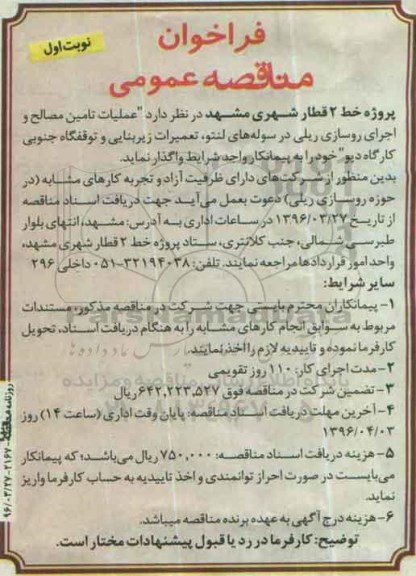 نوبت اول
فراخوان
مناقصه عمومی
پروژه خط ۲ قطار شهری مشهد در نظر دارد "عملیات تامین مصالح و
اجرای روسازی ریلی در سوله‌های لنتو، تعمیرات زیربنایی و توقفگاه جنوبی
کارگاه دپو" خود را به پیمانکار واجد شرایط واگذار نماید.
بدین منظور از شرکت‌های دارای ظرفیت آزاد و تجربه کارهای مشابه (در
حوزه روسازی ریلی) دعوت بعمل می‌آید جهت دریافت اسناد مناقصه
از تاریخ ۱۳۹۶/۰۳/۲۷ در ساعات اداری به آدرس: مشهد، انتهای بلوار
طبرسی شمالی، جنب کلانتری، ستاد پروژه خط ۲ قطار شهری مشهد،
واحد امور قراردادها مراجعه نمایند. تلفن: ۳۲۱۹۴۰۳۸-۰۵۱ داخلی ۲۹۶
سایر شرایط:
۱- پیمانکاران محترم بایستی جهت شرکت در مناقصه مذکور، مستندات
مربوط به سوابق انجام کارهای مشابه را به هنگام دریافت اسناد، تحویل
کارفرما نموده و تاییدیه لازم را اخذ نمایند.
۲- مدت اجرای کار: ۱۱۰ روز تقویمی
۳- تضمین شرکت در مناقصه فوق ۶۴۲,۲۲۳,۵۲۷ ریال
۴- آخرین مهلت دریافت اسناد مناقصه: پایان وقت اداری (ساعت ۱۴) روز
۱۳۹۶/۰۴/۰۳
۵- هزینه دریافت اسناد مناقصه: ۷۵۰,۰۰۰ ریال می‌باشد؛ که پیمانکار
می‌بایست در صورت احراز توانمندی و اخذ تاییدیه به حساب کارفرما واریز
نماید.
۶- هزینه درج آگهی به عهده برنده مناقصه میباشد.
توضیح: کارفرما در رد یا قبول پیشنهادات مختار است.
روزنامه مناقصه ۲۱۶۷-۹۶/۰۳/۲۷
ParsNamadData